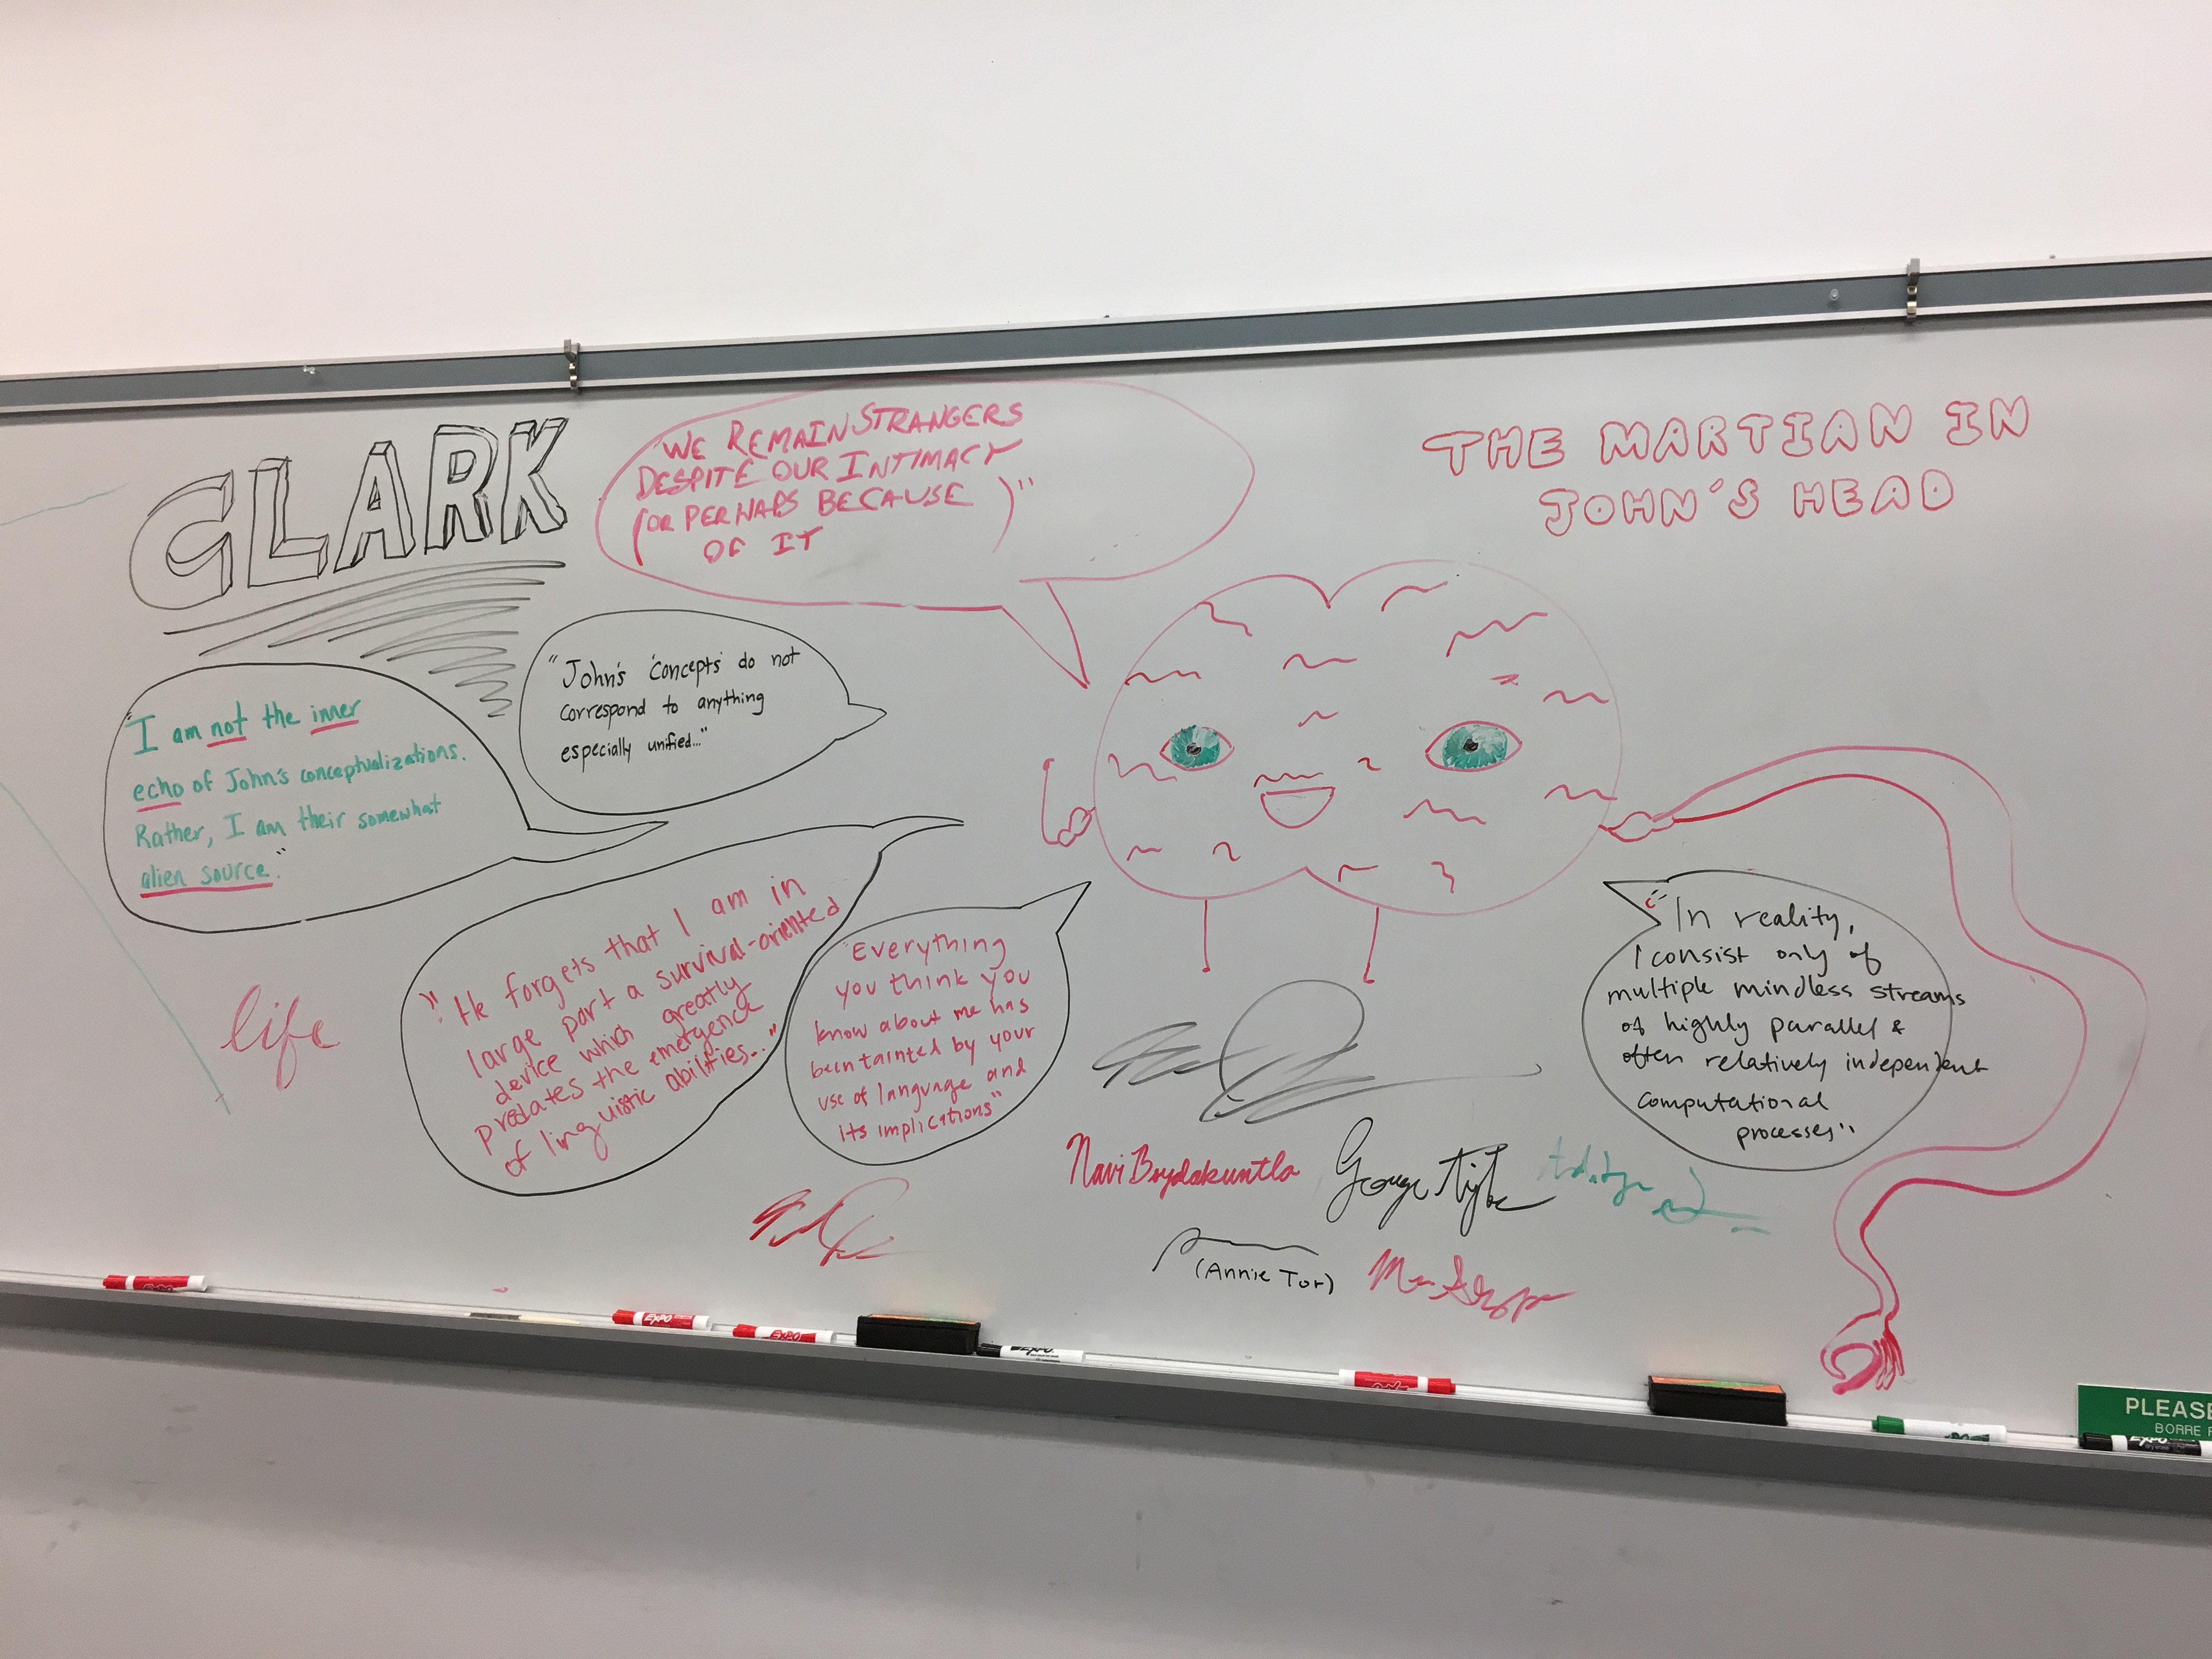 CLARK
"WE REMAIN STRANGERS
DESPITE OUR INTIMACY
(OR PERHAPS BECAUSE
OF IT)"
THE MARTIAN IN
JOHN'S HEAD
"John's 'concepts' do not
correspond to anything
especially unified..."
"I am not the inner
echo of John's conceptualizations.
Rather, I am their somewhat
alien source."
"He forgets that I am in
large part a survival-oriented
device which greatly
predates the emergence
of linguistic abilities..."
"Everything
you think you
know about me has
been tainted by your
use of language and
its implications"
"In reality,
I consist only of
multiple mindless streams
of highly parallel &
often relatively independent
computational
processes"
life
Navi
George
(Annie Tor)
EXPO
EXPO
EXPO
EXPO
PLEASE
BORRE